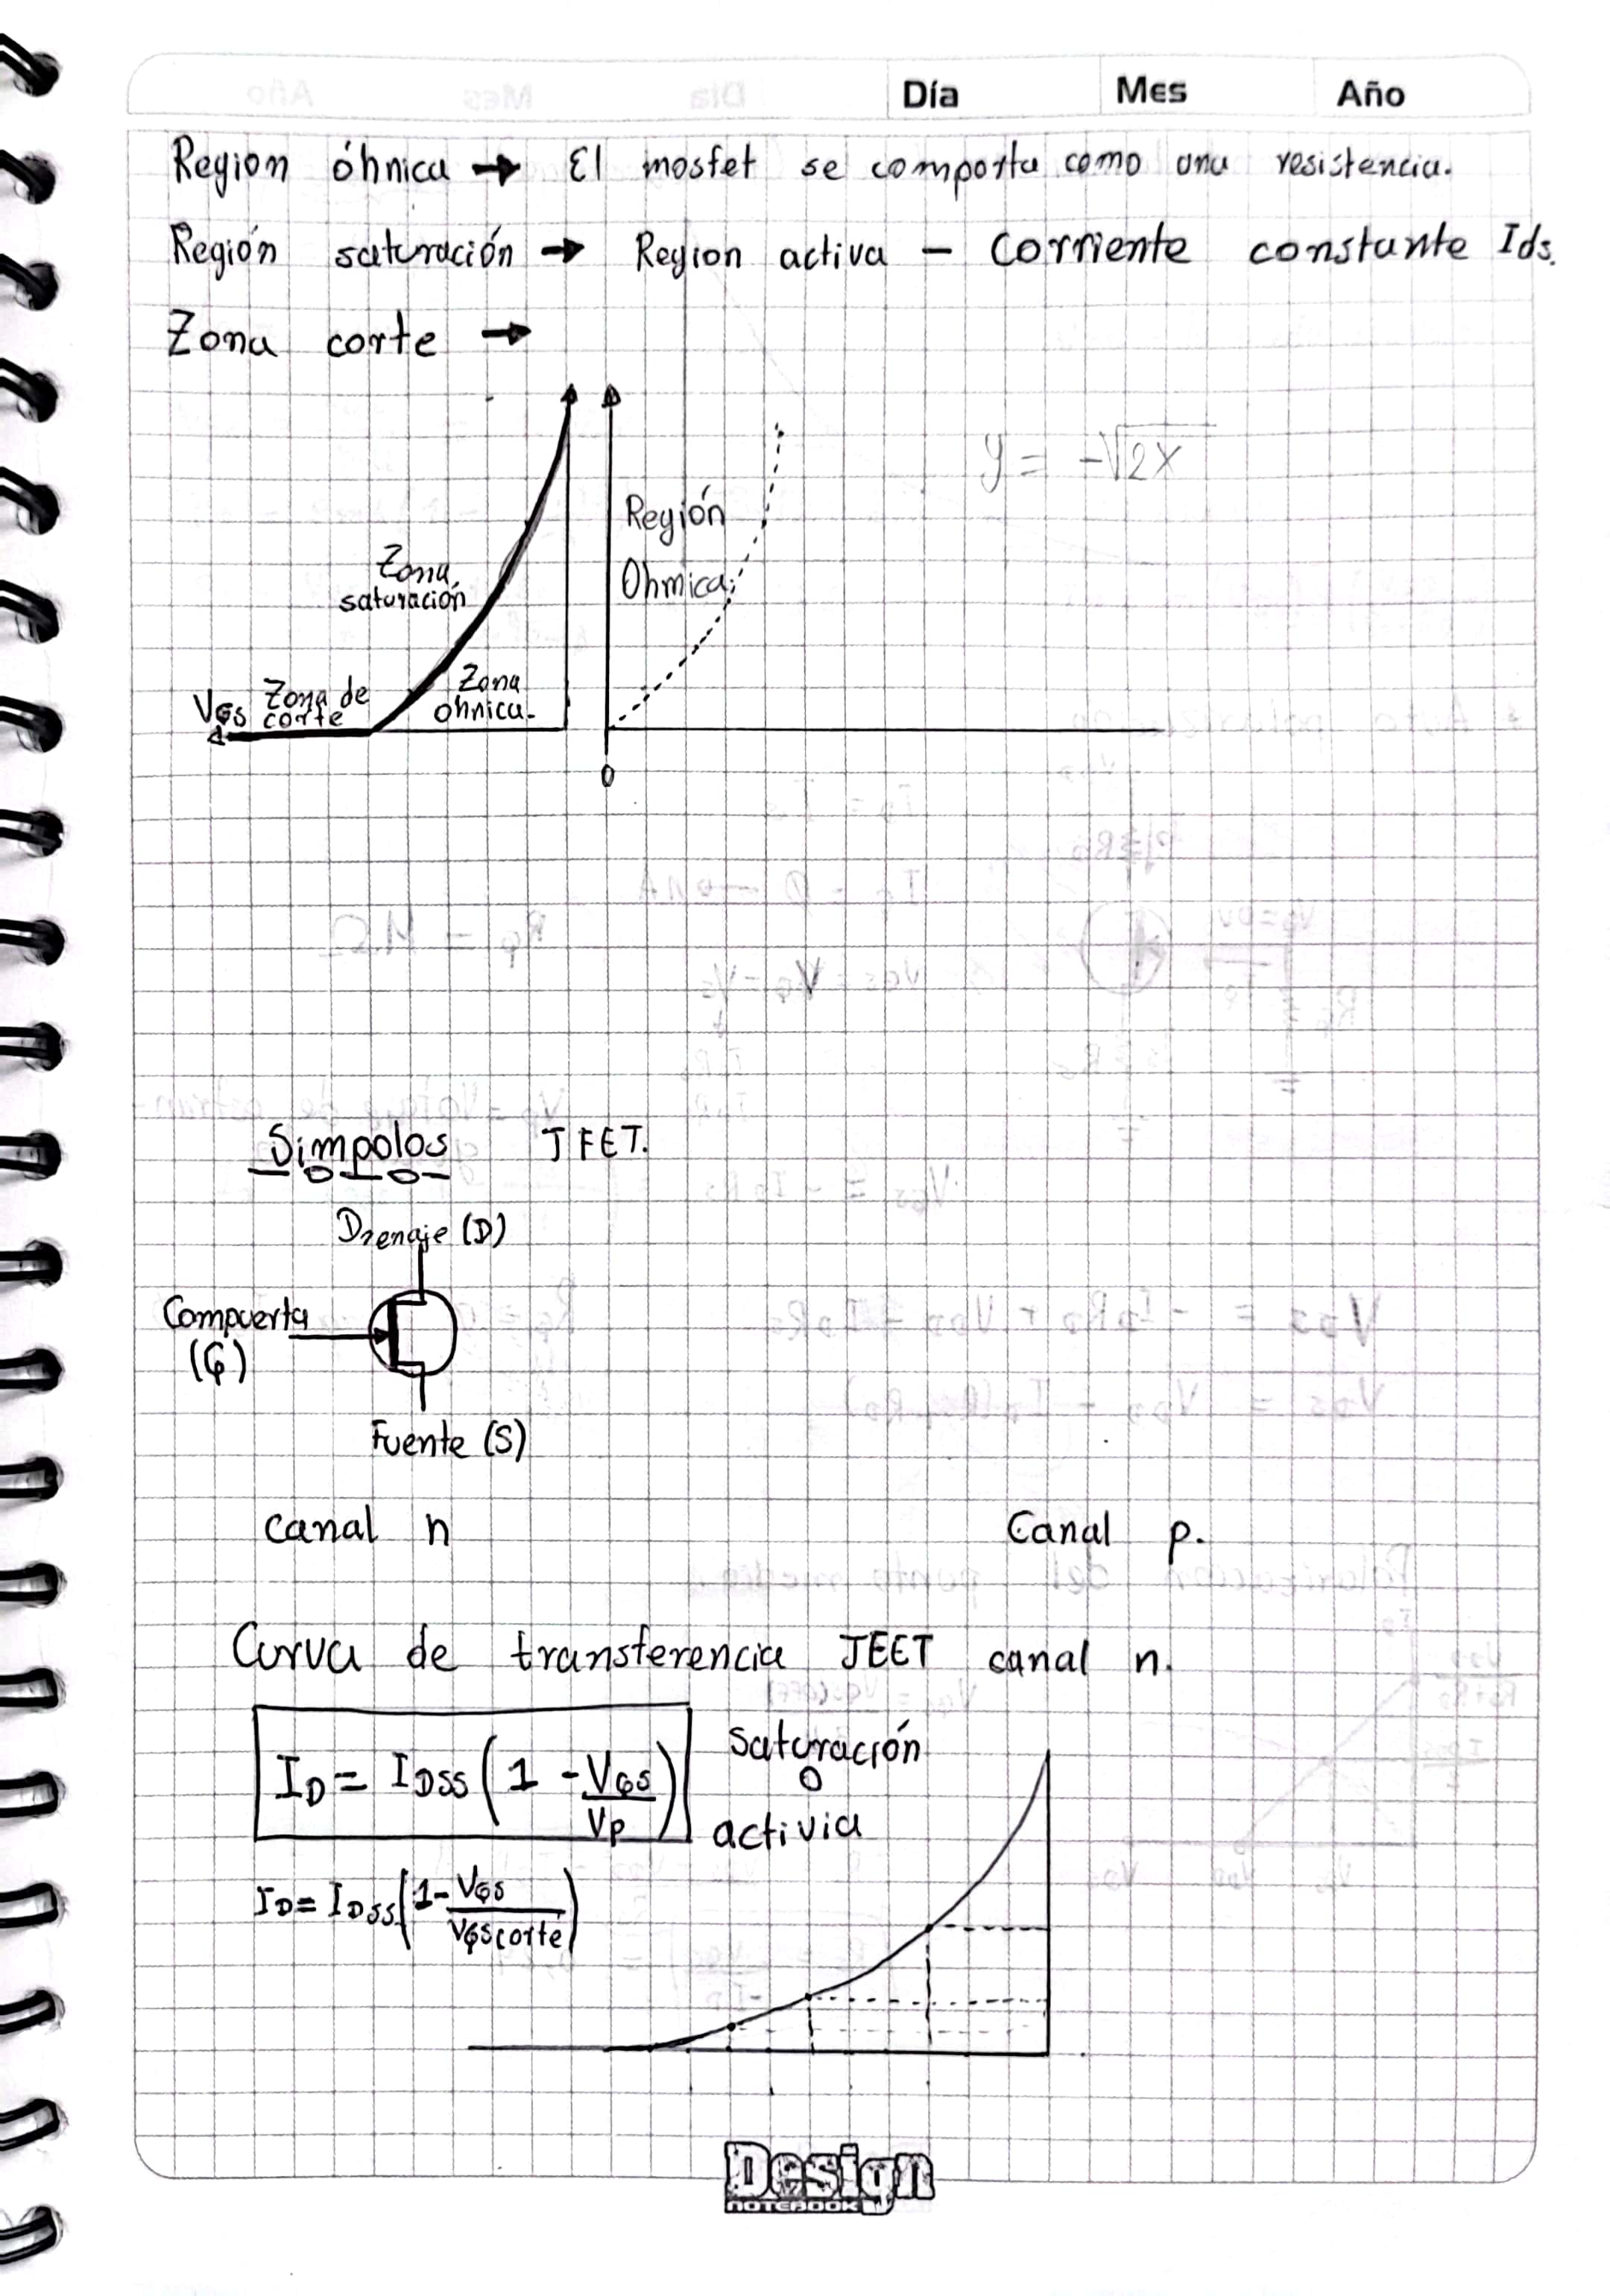 Día Mes Año
Region óhnica → El mosfet se comporta como una resistencia.
Región saturación → Region activa – Corriente constante Ids.
Zona corte →
y = -√2x
Región
Ohmica
Zona
saturación
Zona
ohnica.
VGS Zona de
corte
0
Simpolos JFET.
Drenaje (D)
Compuerta
(G)
Fuente (S)
canal n Canal p.
Curva de transferencia JEET canal n.
ID = IDSS (1 - VGS/Vp)
saturación
o
activia
ID = IDSS (1 - VGS/VGScorte)
Design
NOTEBOOK